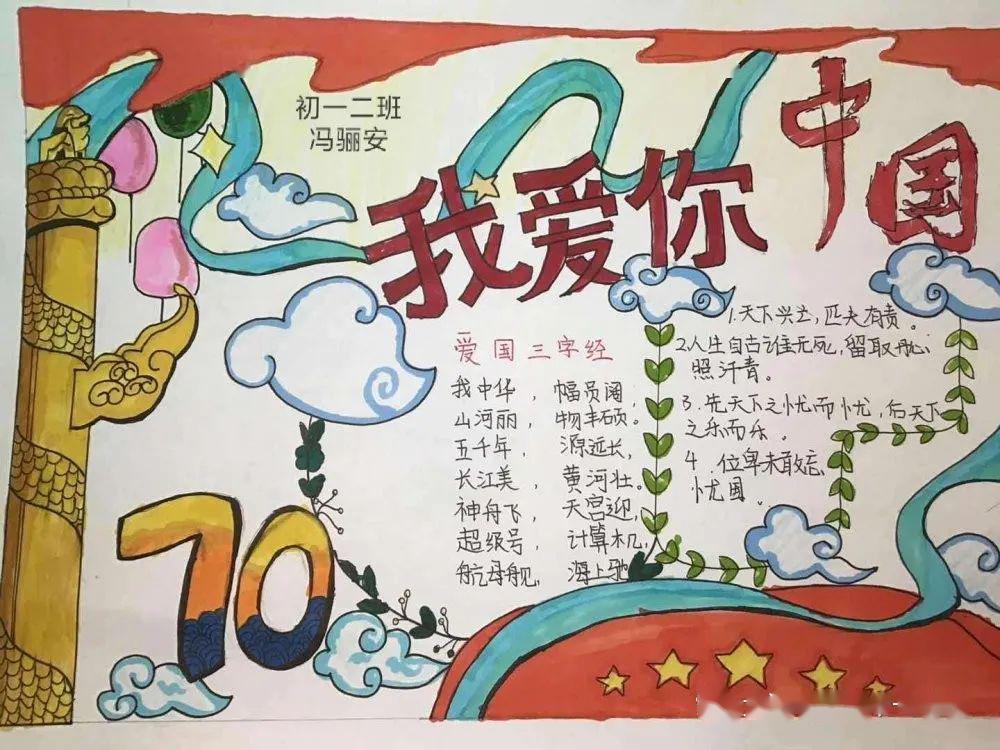 初一二班
冯骊安
我爱你中国
爱国三字经
我中华，幅员阔，
山河丽，物丰硕。
五千年，源远长，
长江美，黄河壮。
神舟飞，天宫迎，
超级号，计算机，
航母舰，海上驰
1.天下兴亡，匹夫有责。
2.人生自古谁无死，留取
照汗青。
3.先天下之忧而忧，后天下
之乐而乐。
4.位卑未敢忘
忧国。
70